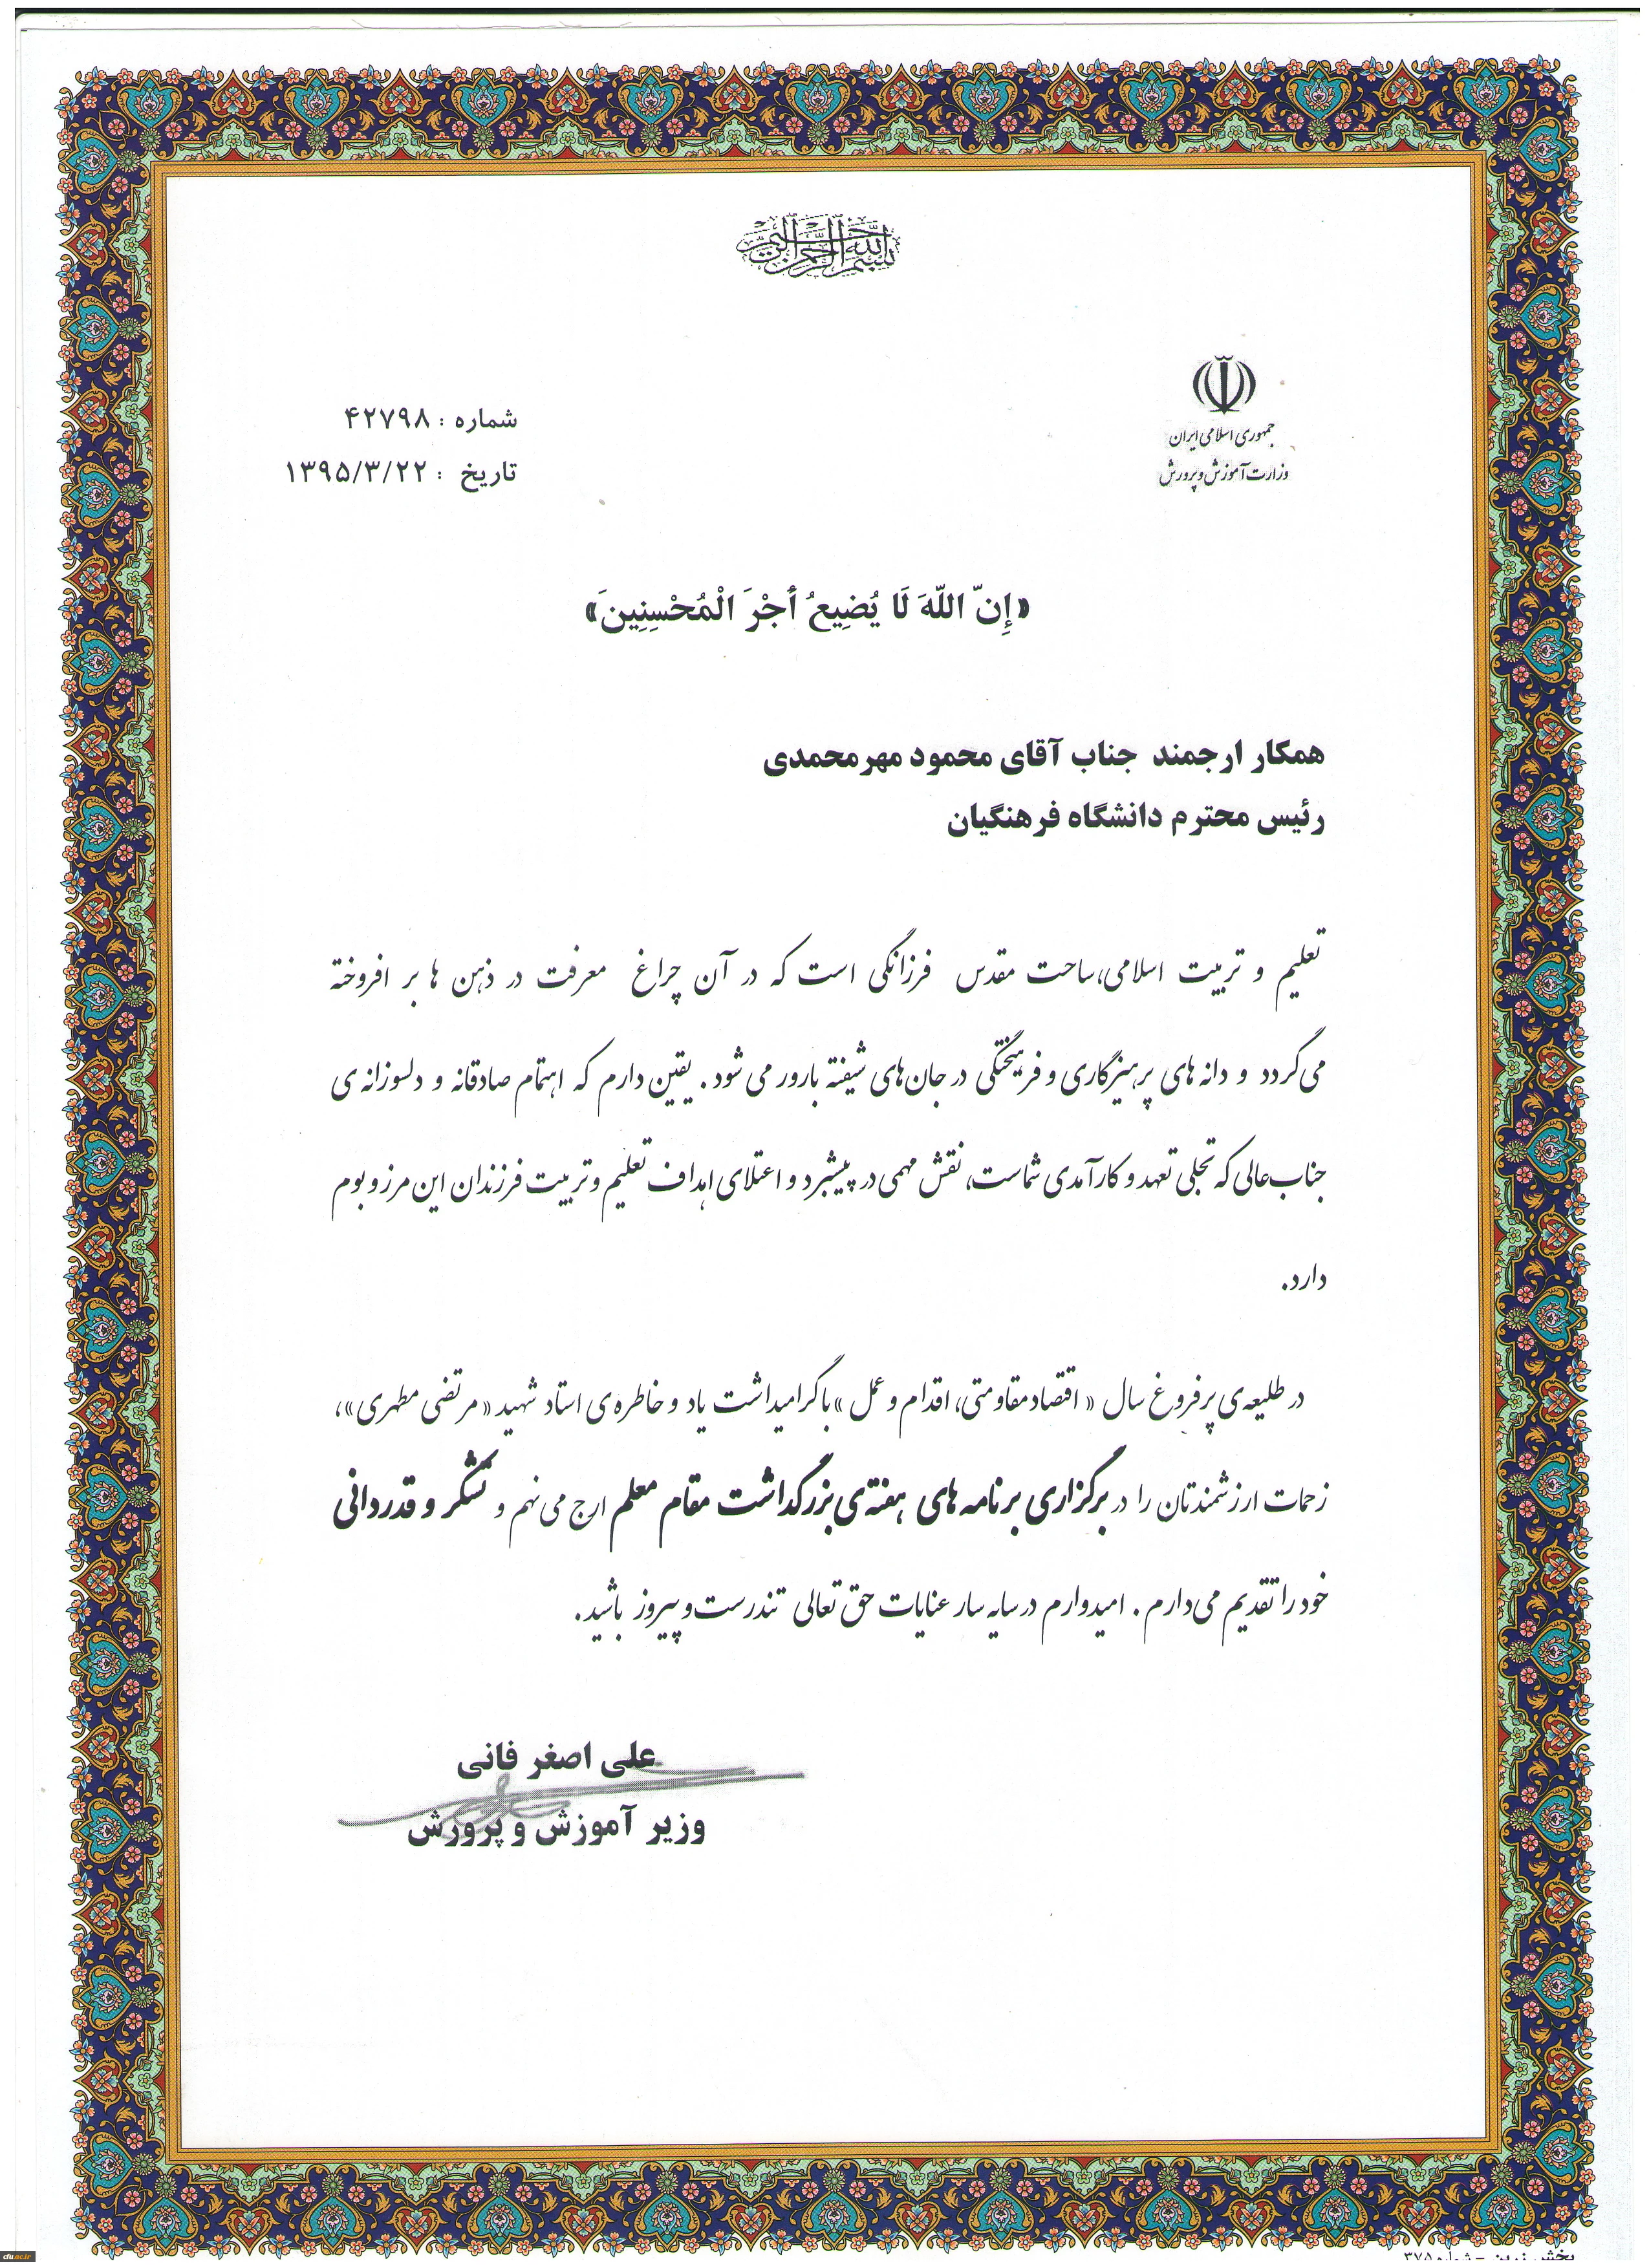 بسم الله الرحمن الرحیم
جمهوری اسلامی ایران
وزارت آموزش و پرورش
شماره : ۴۲۷۹۸
تاریخ : ۱۳۹۵/۳/۲۲
«إِنّ اللّهَ لَا يُضِيعُ أَجْرَ الْمُحْسِنِينَ»
همکار ارجمند جناب آقای محمود مهرمحمدی
رئیس محترم دانشگاه فرهنگیان
تعلیم و تربیت اسلامی،ساحت مقدس فرزانگی است که در آن چراغ معرفت در ذهن ها بر افروخته
می‌گردد و دانه های پرهیزگاری و فرهیختگی در جان‌های شیفته بارور می شود. یقین دارم که اهتمام صادقانه و دلسوزانه ی
جناب‌عالی که تجلی تعهد و کارآمدی شماست، نقش مهمی در پیشبرد و اعتلای اهداف تعلیم و تربیت فرزندان این مرز و بوم
دارد.
در طلیعه‌ی پرفروغ سال « اقتصاد مقاومتی، اقدام و عمل » با گرامیداشت یاد و خاطره‌ی استاد شهید « مرتضی مطهری»،
زحمات ارزشمندتان را در برگزاری برنامه های هفته‌ی بزرگداشت مقام معلم ارج می نهم و تشکر و قدردانی
خود را تقدیم می‌دارم. امیدوارم در سایه سار عنایات حق تعالی تندرست و پیروز باشید.
علی اصغر فانی
وزیر آموزش و پرورش
cfu.ac.ir